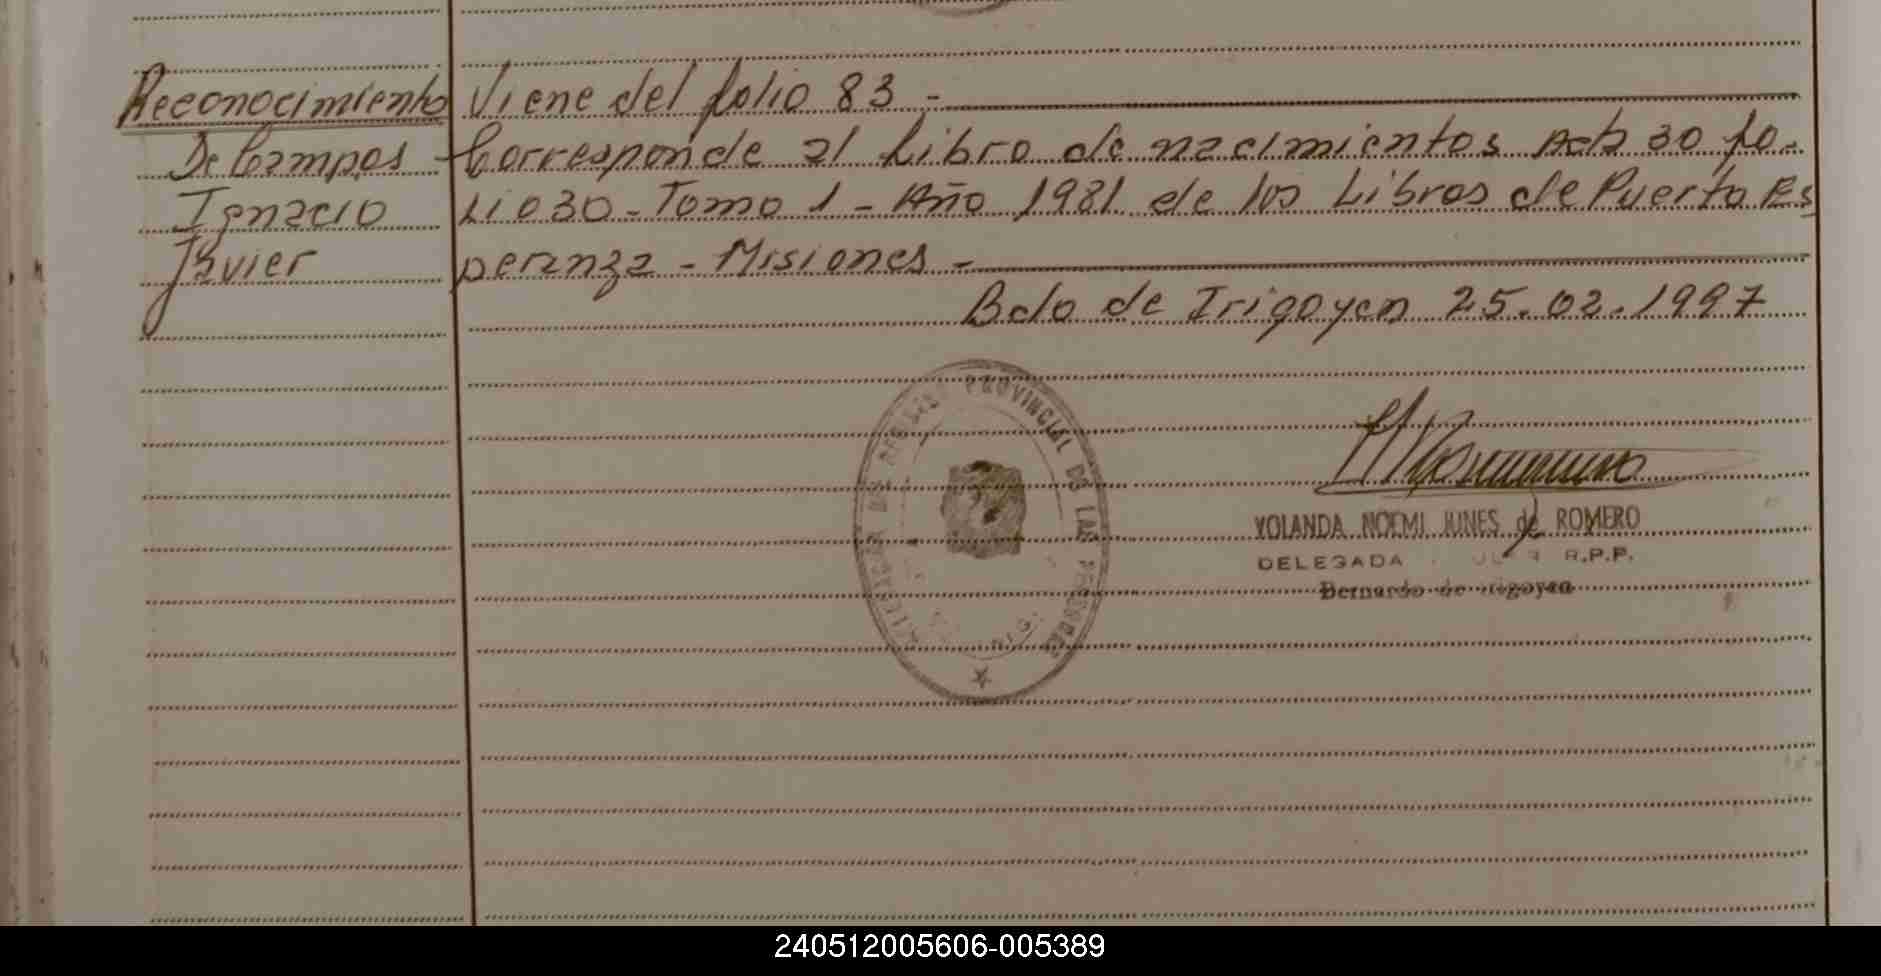 Reconocimiento
De Campos
Ignacio
Javier
Viene del folio 83 -
Corresponde al Libro de nacimientos Acta 30 fo-
Lio 30 - Tomo 1 - Año 1981 de los Libros de Puerto Es
peranza - Misiones -
Bdo de Irigoyen 25.02.1997
PROVINCIAL DE LAS PERSONAS
YOLANDA NOEMI JUNES de ROMERO
DELEGADA R.P.P.
Bernardo de Irigoyen
240512005606-005389